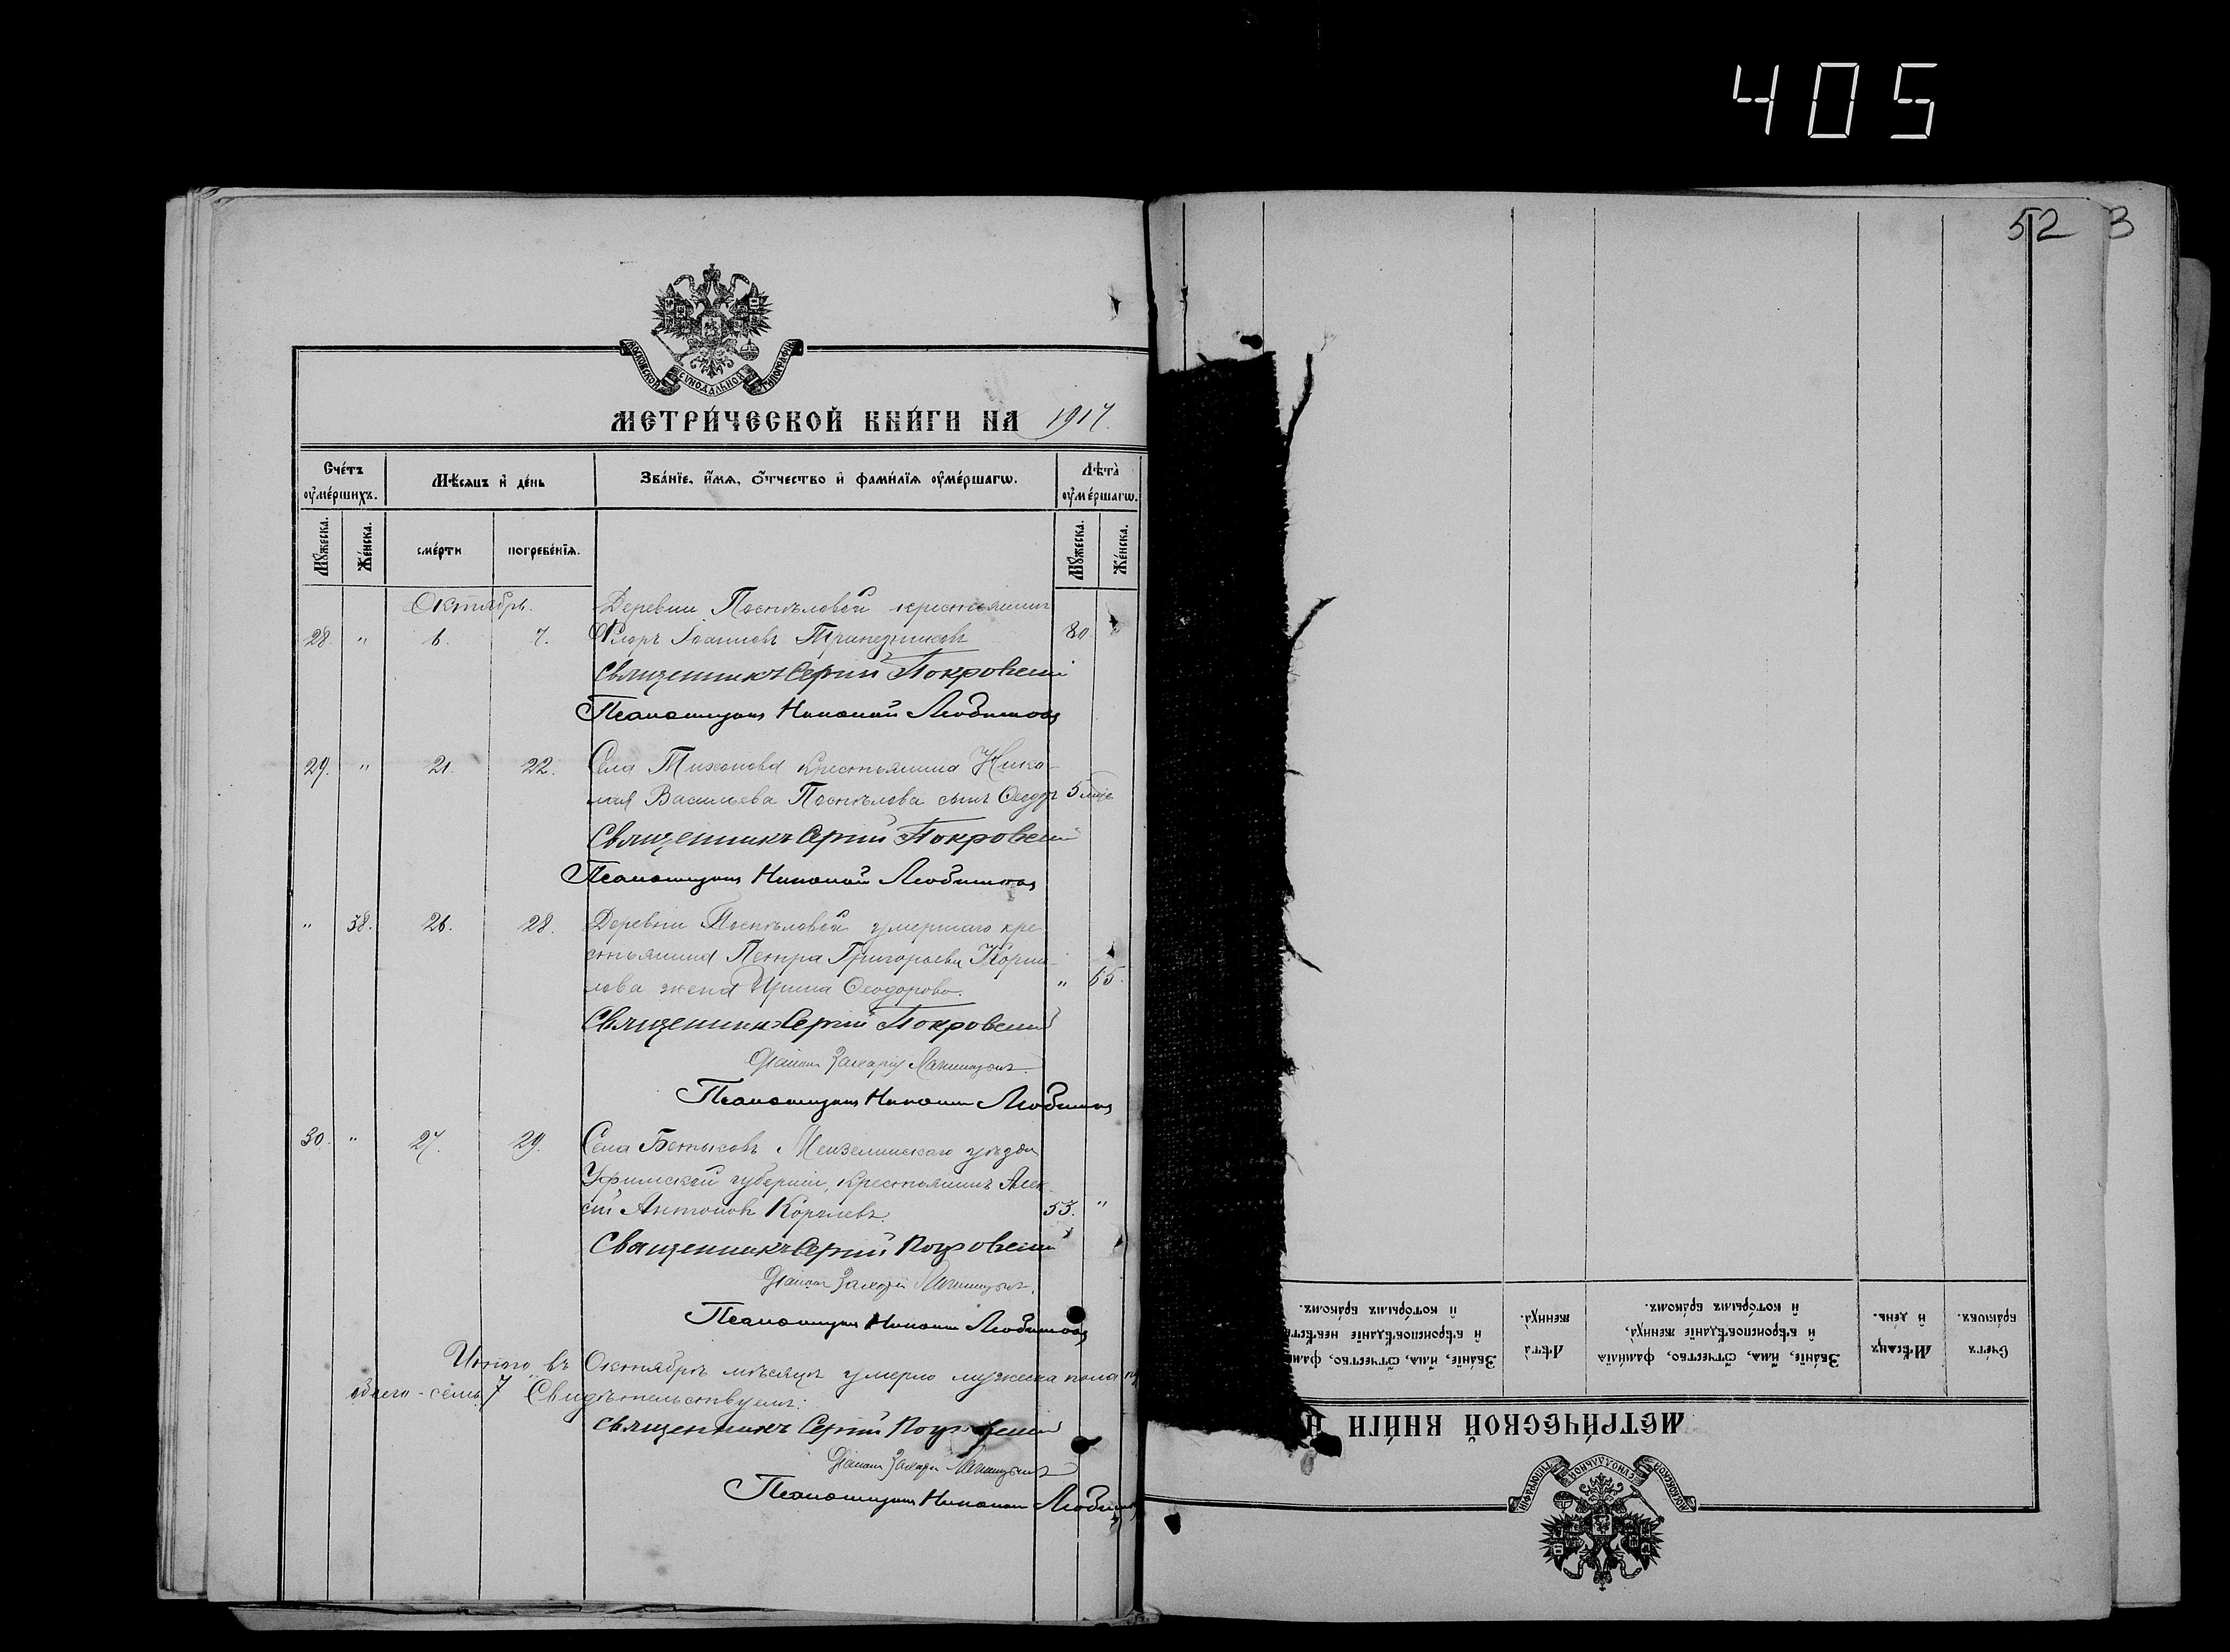 405
52
3
МОСКОВСКОЙ СѴНОДАЛЬНОЙ ТИПОГРАФІИ
МЕТРИ́ЧЕСКОЙ КНИ́ГИ НА 1917.
Сче́тъ оу҆ме́ршихъ.
Мѣ́сяцъ и҆ де́нь
Зва́нїе, и҆́мѧ, ѻ҆́тчество и҆ фами́лїѧ оу҆ме́ршагѡ.
Лѣта̀ оу҆ме́ршагѡ.
Мꙋ́жеска.
Же́нска.
сме́рти
погребе́нїѧ.
Мꙋ́жеска.
Же́нска.
Октябрь. Деревни Поспѣловой крестьянинъ
28. " 6. 7. Флоръ Іоанновъ Трапезниковъ 80.
Священникъ Сергій Покровскій
Псаломщикъ Николай Любимовъ
29. " 21. 22. Села Тихонова крестьянина Нико-
лая Васильева Поспѣлова сынъ Ѳеодоръ 5 мѣс
Священникъ Сергій Покровскій
Псаломщикъ Николай Любимовъ
" 38. 26. 28. Деревни Поспѣловой умершаго кре
стьянина Петра Григорьева Корни-
лова жена Ирина Ѳеодорова. " 65.
Священникъ Сергій Покровскій
Діаконъ Захарій
Псаломщикъ Николай Любимовъ
30. " 27. 29. Села Бетьковъ Мензелинскаго уѣзда
Уфимской губерніи, крестьянинъ Алек
сій Антоновъ Королевъ. 53. "
Священникъ Сергій Покровскій
Діаконъ Захарій
Псаломщикъ Николай Любимовъ
Итого въ Октябрѣ мѣсяцѣ умерло мужеска пола
обоего - семь 7 Свидѣтельствуемъ:
Священникъ Сергій Покровскій
Діаконъ Захарій
Псаломщикъ Николай Любимовъ
МЕТРИ́ЧЕСКОЙ КНИ́ГИ Н
Сче́тъ бра́кωвъ.
Мѣ́сяцъ и҆ де́нь.
Зва́нїе, и҆́мѧ, ѻ҆́тчество, фами́лїѧ и҆ вѣроисповѣ́данїе жениха̀, и҆ кото́рымъ бра́комъ.
Лѣта̀ жениха̀.
Зва́нїе, и҆́мѧ, ѻ҆́тчество, фам
и҆ вѣроисповѣ́данїе невѣ́ст
и҆ кото́рымъ бра́комъ.
МОСКОВСКОЙ СѴНОДАЛЬНОЙ ТИПОГРАФІИ